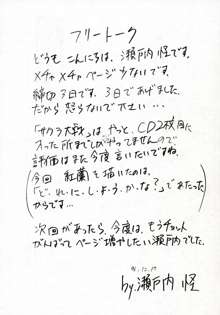 フリートーク
どうも こんにちは、瀬戸内 怪です。
メチャメチャ ページ少ないです。
締切3日です。3日であげました。
だから怒らないで下さい…
「サクラ大戦」は、やっと、CD2枚目に
入った所までしかやってませんので
評価はまた今度言いたいですね。
今回 紅蘭を描いたのは、
「ど.れ.に.し.よ.う.か.な?」であたった
からです…
次回があったら、今度は、もうチョット
がんばってページ増やしたい瀬戸でした。
by.瀬戸内 怪